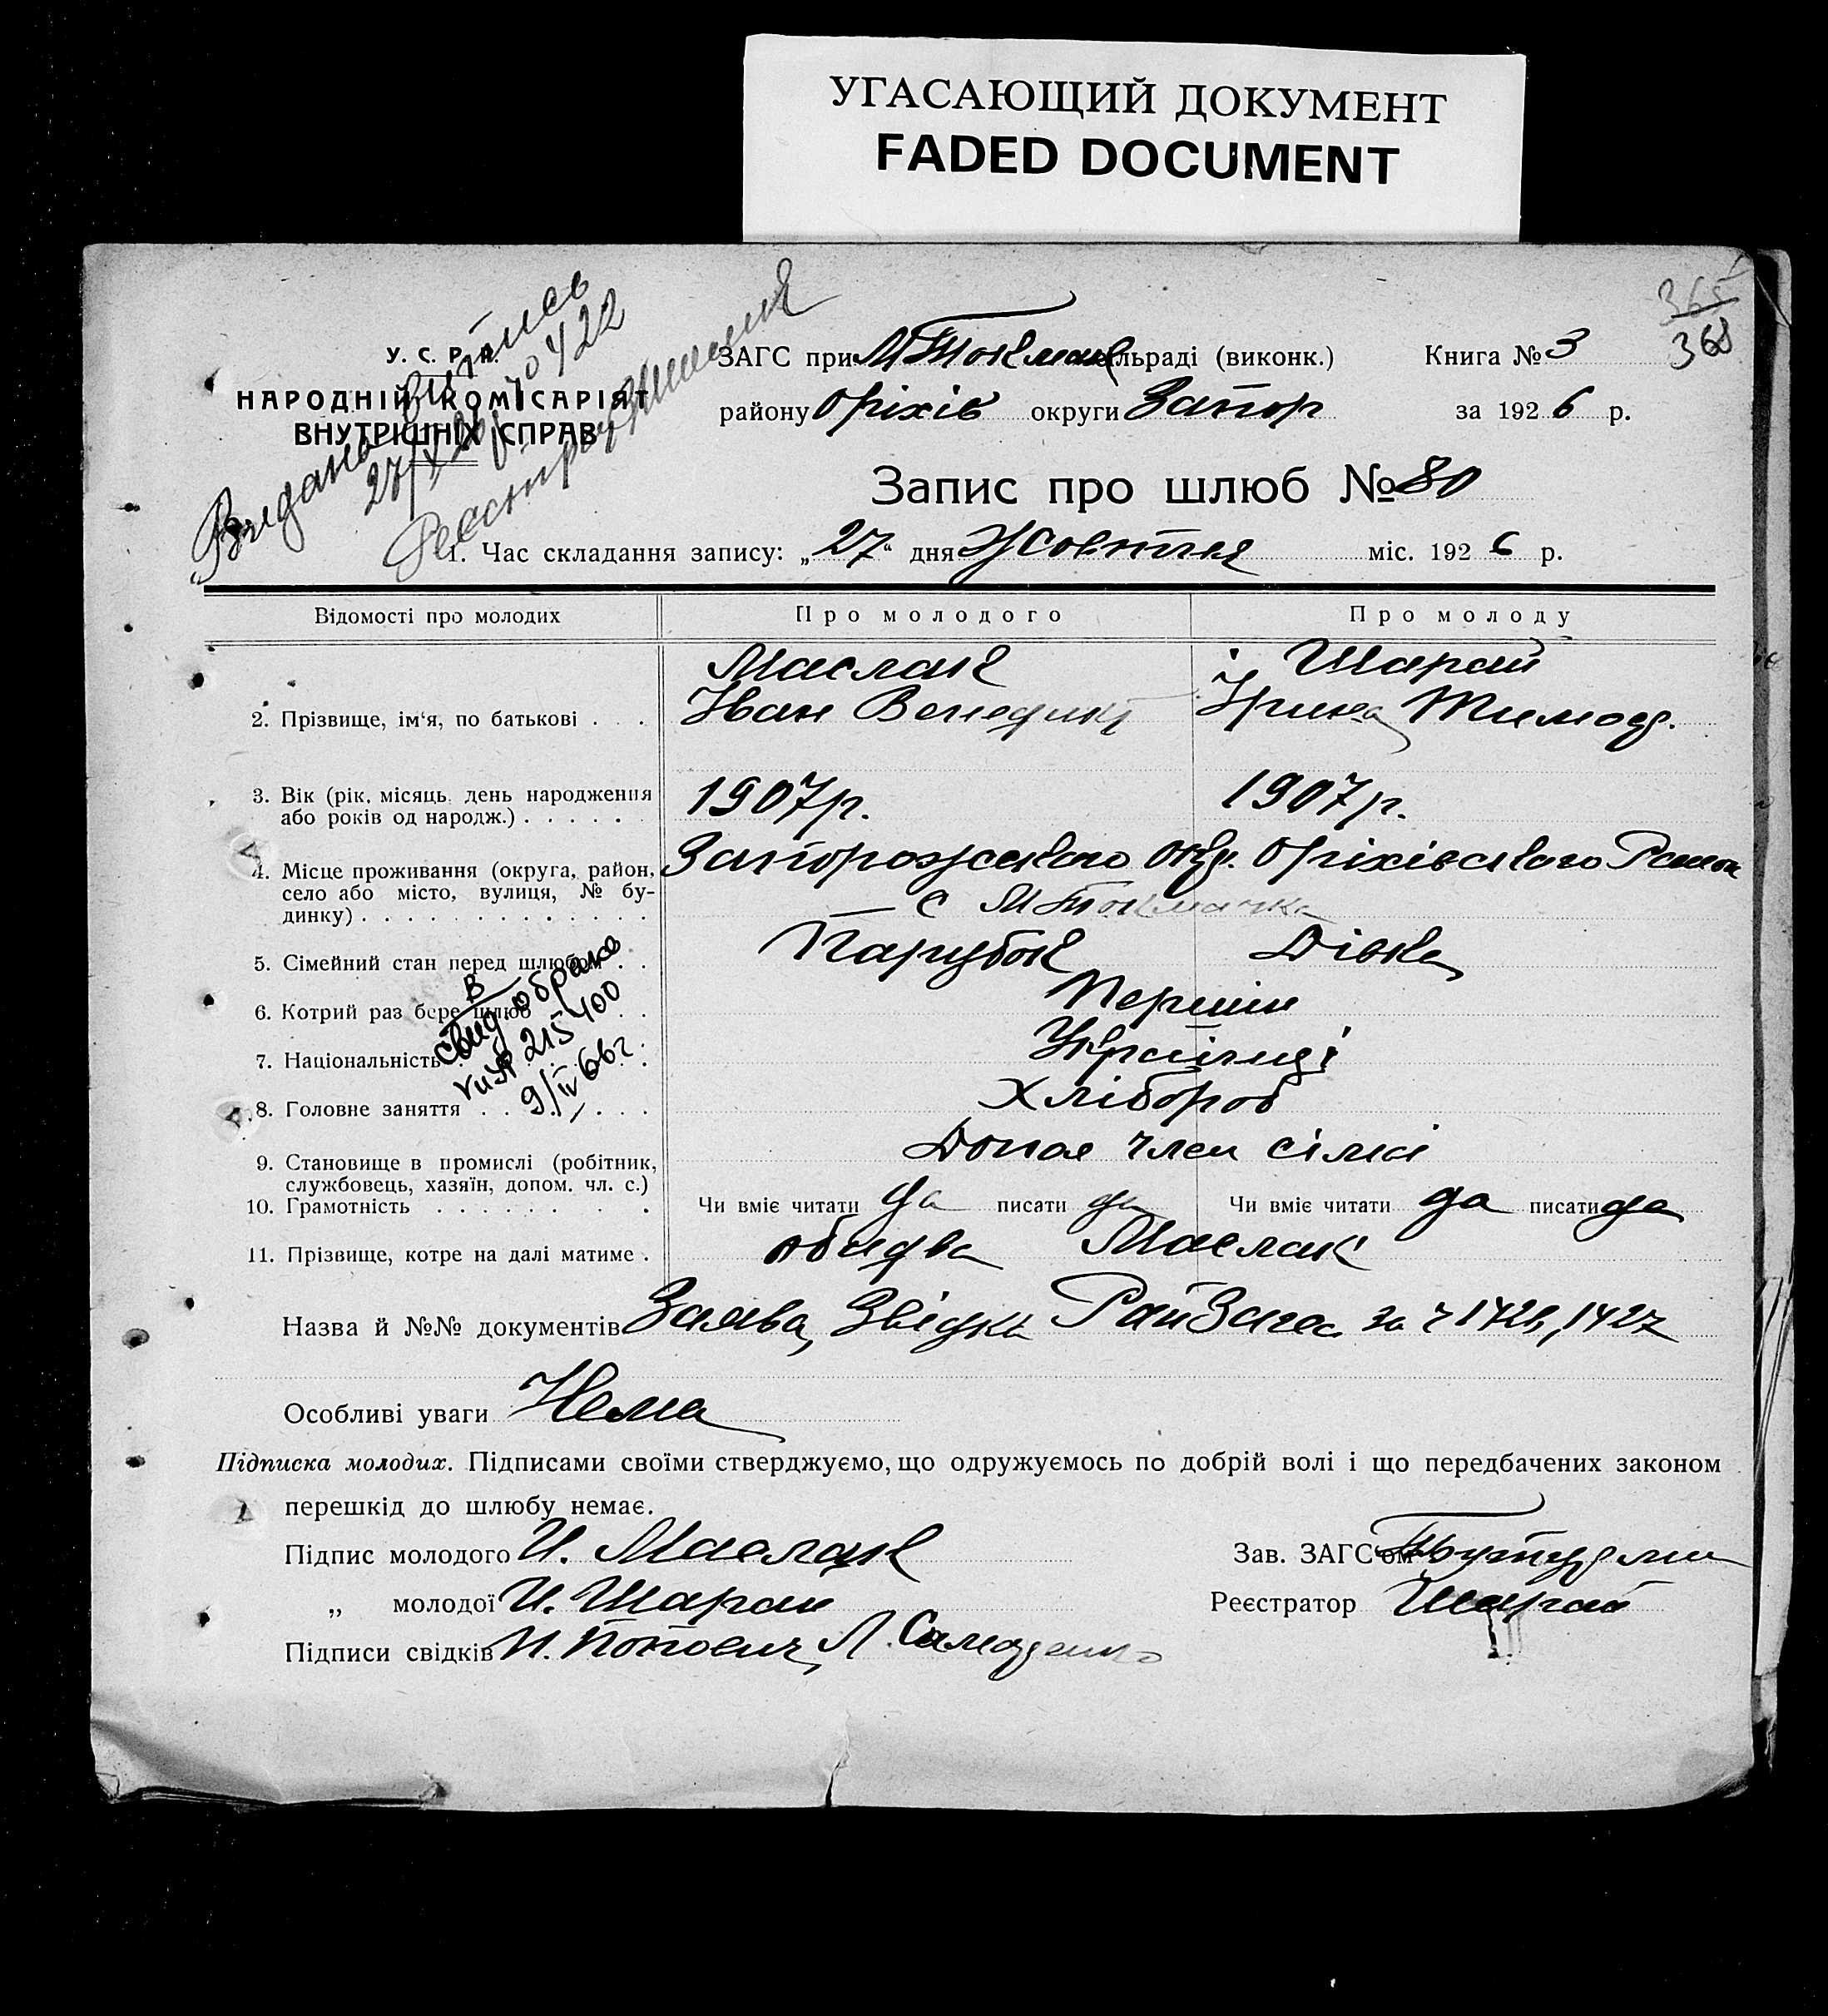 УГАСАЮЩИЙ ДОКУМЕНТ
FADED DOCUMENT
365
368
У. С. Р. Р.
НАРОДНІЙ КОМІСАРІЯТ
ВНУТРІШНІХ СПРАВ
Видана витпись
27/X 26 422
ЗАГС при М Токмац сільраді (виконк.) Книга № 3
району Оріхів округи Запор за 1926 р.
Запис про шлюб № 80
1. Час складання запису: „27“ дня Жовтня міс. 1926 р.
Відомості про молодих Про молодого Про молоду
Маслак Шарай
2. Прізвище, ім‘я, по батькові . . . Іван Венедикт Ірина Тимоф.
3. Вік (рік, місяць, день народження 1907 р. 1907 р.
або років од народж.) . . . . . .
4. Місце проживання (округа, район, Запорожського Окр. Оріхівського Району
село або місто, вулиця, № бу-
динку) . . . . . . . . . . . . . с М Токмачка
5. Сімейний стан перед шлюбом . . Парубок Дівка
6. Котрий раз бере шлюб . . . Перший
7. Національність . . . . . Українці
8. Головне заняття . . . . . . Хлібороб
В
свид о браке
215400
9/IV 66 г.
9. Становище в промислі (робітник, Допом член сімі
службовець, хазяїн, допом. чл. с.)
10. Грамотність . . . . . . . . Чи вміє читати да писати да Чи вміє читати да писати да
11. Прізвище, котре на далі матиме . обидва Маслак
Назва й №№ документів Заява, Звідка РайЗагса за ч 1426, 1427
Особливі уваги Нема
Підписка молодих. Підписами своїми стверджуємо, що одружуємось по добрій волі і що передбачених законом
перешкід до шлюбу немає.
Підпис молодого И. Маслак Зав. ЗАГС‘ом
„ молодої И. Шарай Реєстратор Шарай
Підписи свідків И. Попович, Л. Самоденко